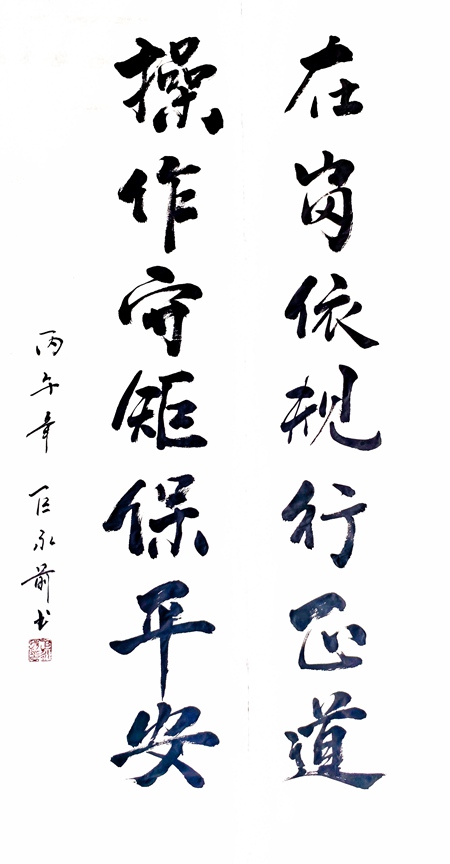 在岗依规行正道
操作守矩保平安
丙午年 任永前书